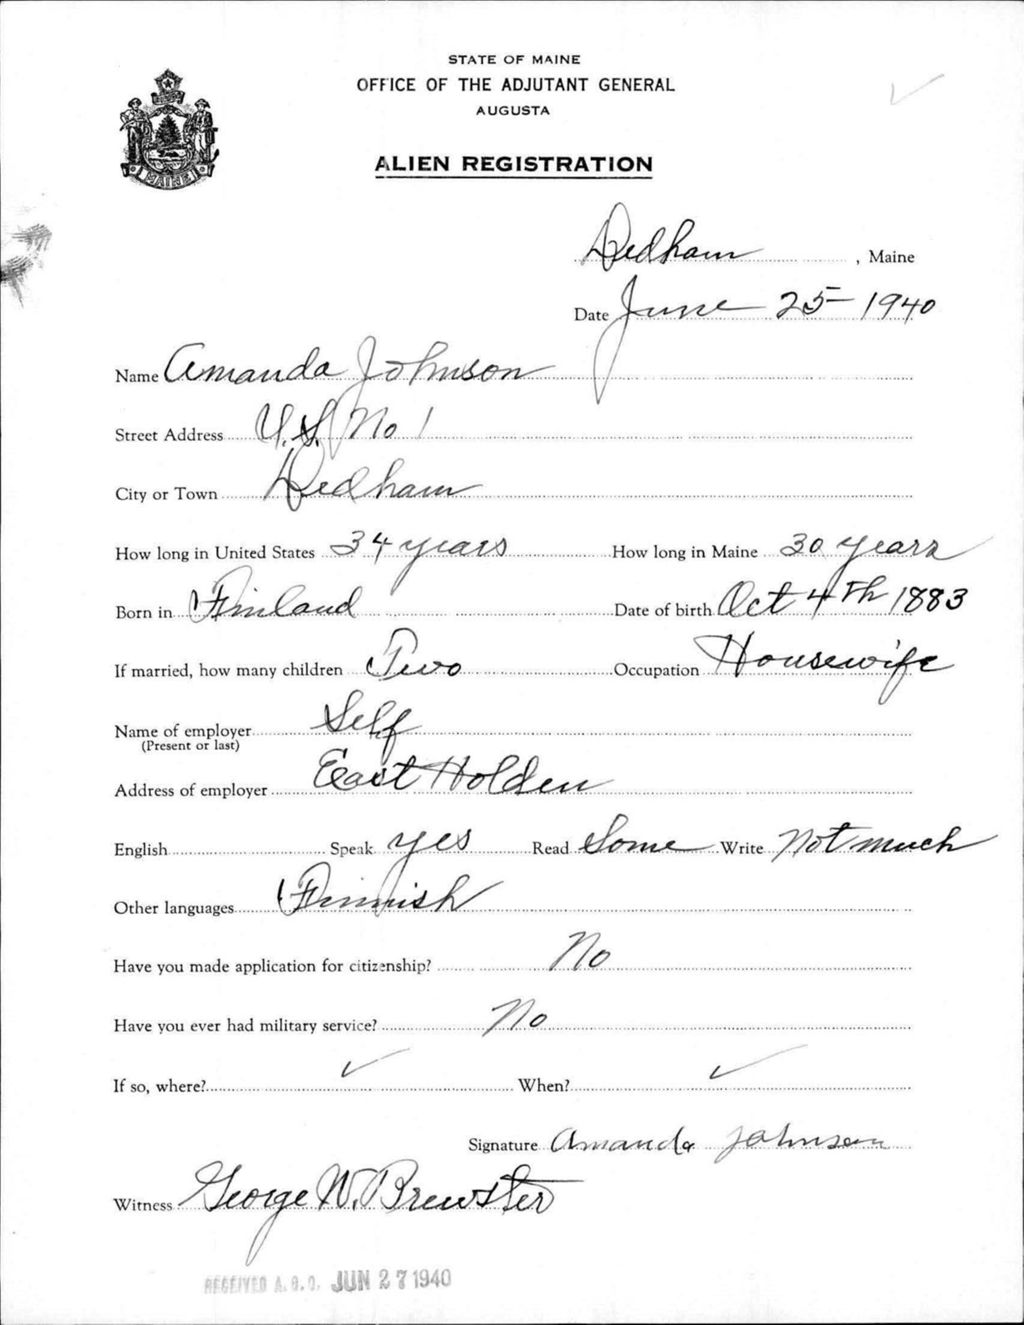 STATE OF MAINE
OFFICE OF THE ADJUTANT GENERAL
AUGUSTA
ALIEN REGISTRATION
MAINE
Dedham, Maine
Date June 25 - 1940
Name Amanda Johnson
Street Address U.S. No 1
City or Town Dedham
How long in United States 34 years How long in Maine 30 years
Born in Finland Date of birth Oct 4th 1883
If married, how many children Two Occupation Housewife
Name of employer Self
(Present or last)
Address of employer East Holden
English Speak yes Read Some Write Not much
Other languages Finnish
Have you made application for citizenship? No
Have you ever had military service? No
If so, where? ✓ When? ✓
Signature Amanda Johnson
Witness George W. Brewster
RECEIVED A.G.O. JUN 27 1940